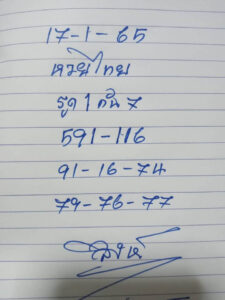 17-1-65
หวยไทย
รูด 1 กับ 7
591-116
91-16-74
79-76-77
สิงห์